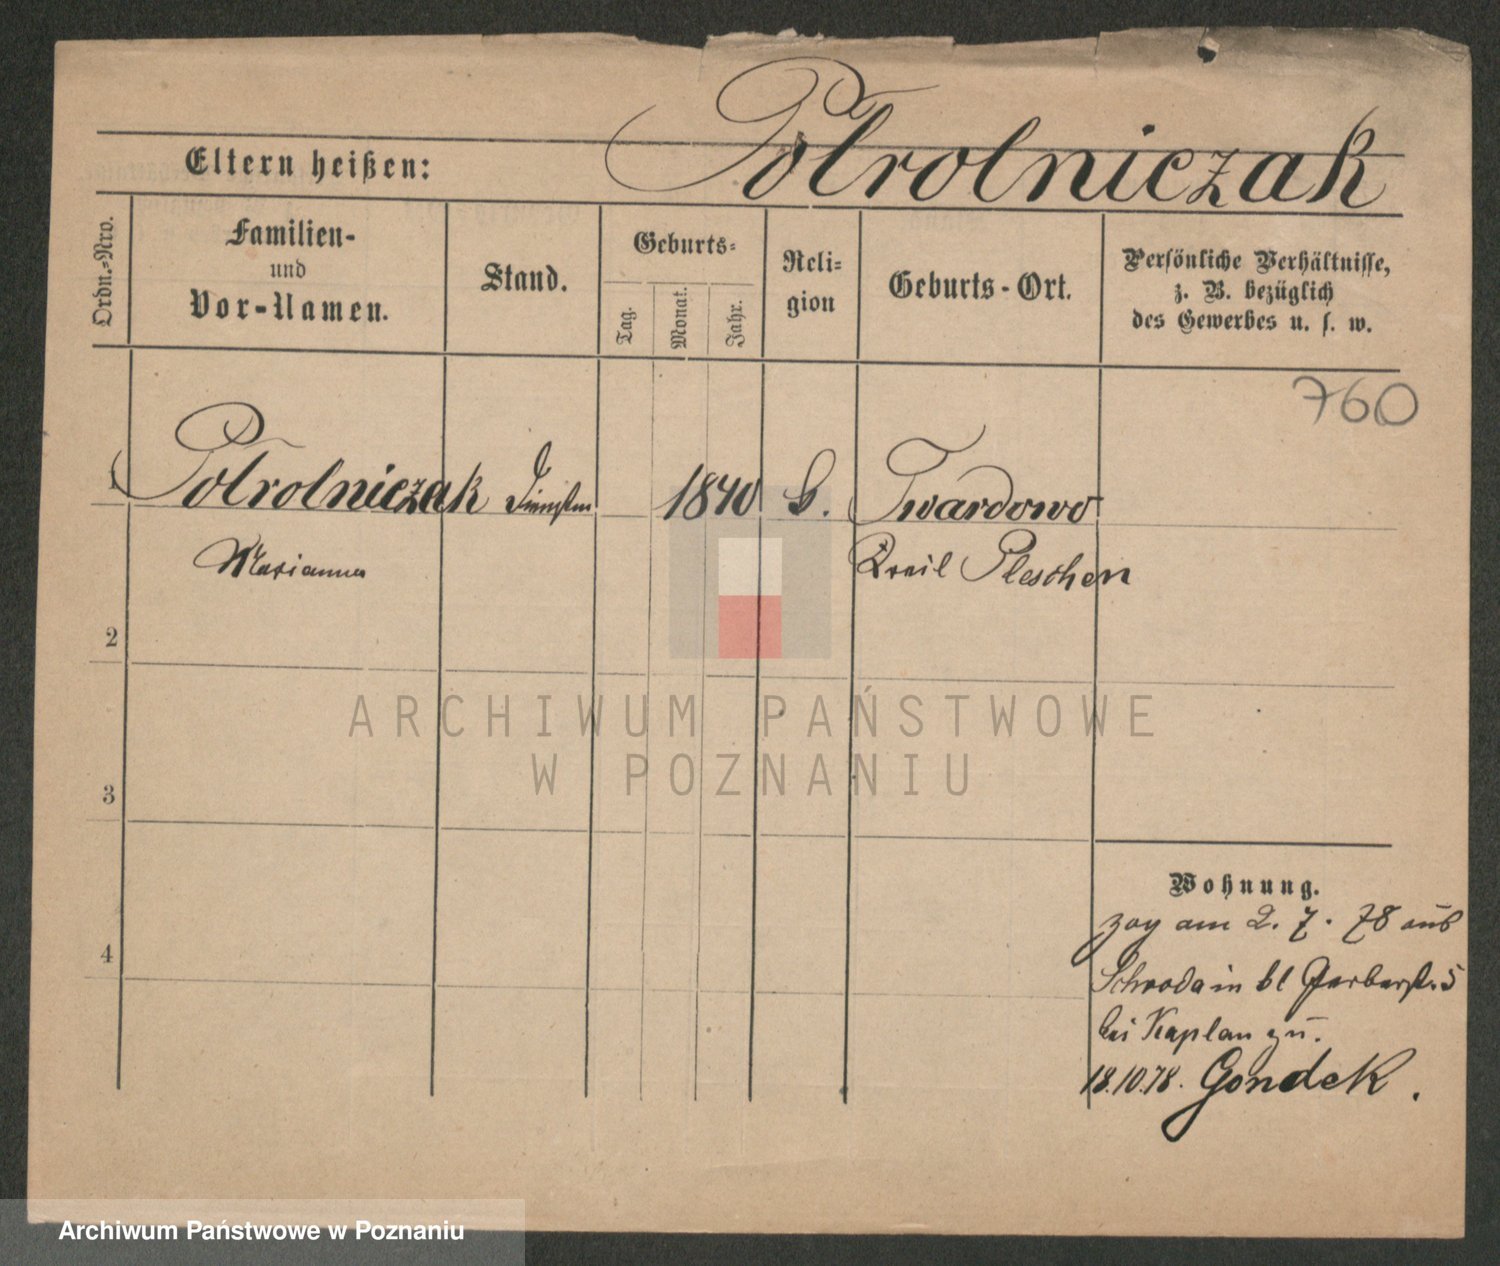 Potrolniczak
Eltern heißen:
Ordn.-Nro.
Familien-
und
Vor-Namen.
Stand.
Geburts-
Tag.
Monat.
Jahr.
Reli-
gion
Geburts-Ort.
Persönliche Verhältnisse,
z. B. bezüglich
des Gewerbes u. s. w.
760
1 Potrolniczak 1840 Twardowo
Marianna Kreis Pleschen
2
3
4
Wohnung.
zog am 2. 7. 78 aus
Schroda in kl Gerberst. 5
bei Kaplan zu.
18.10.78. Gondek.
ARCHIWUM PAŃSTWOWE
W POZNANIU
Archiwum Państwowe w Poznaniu